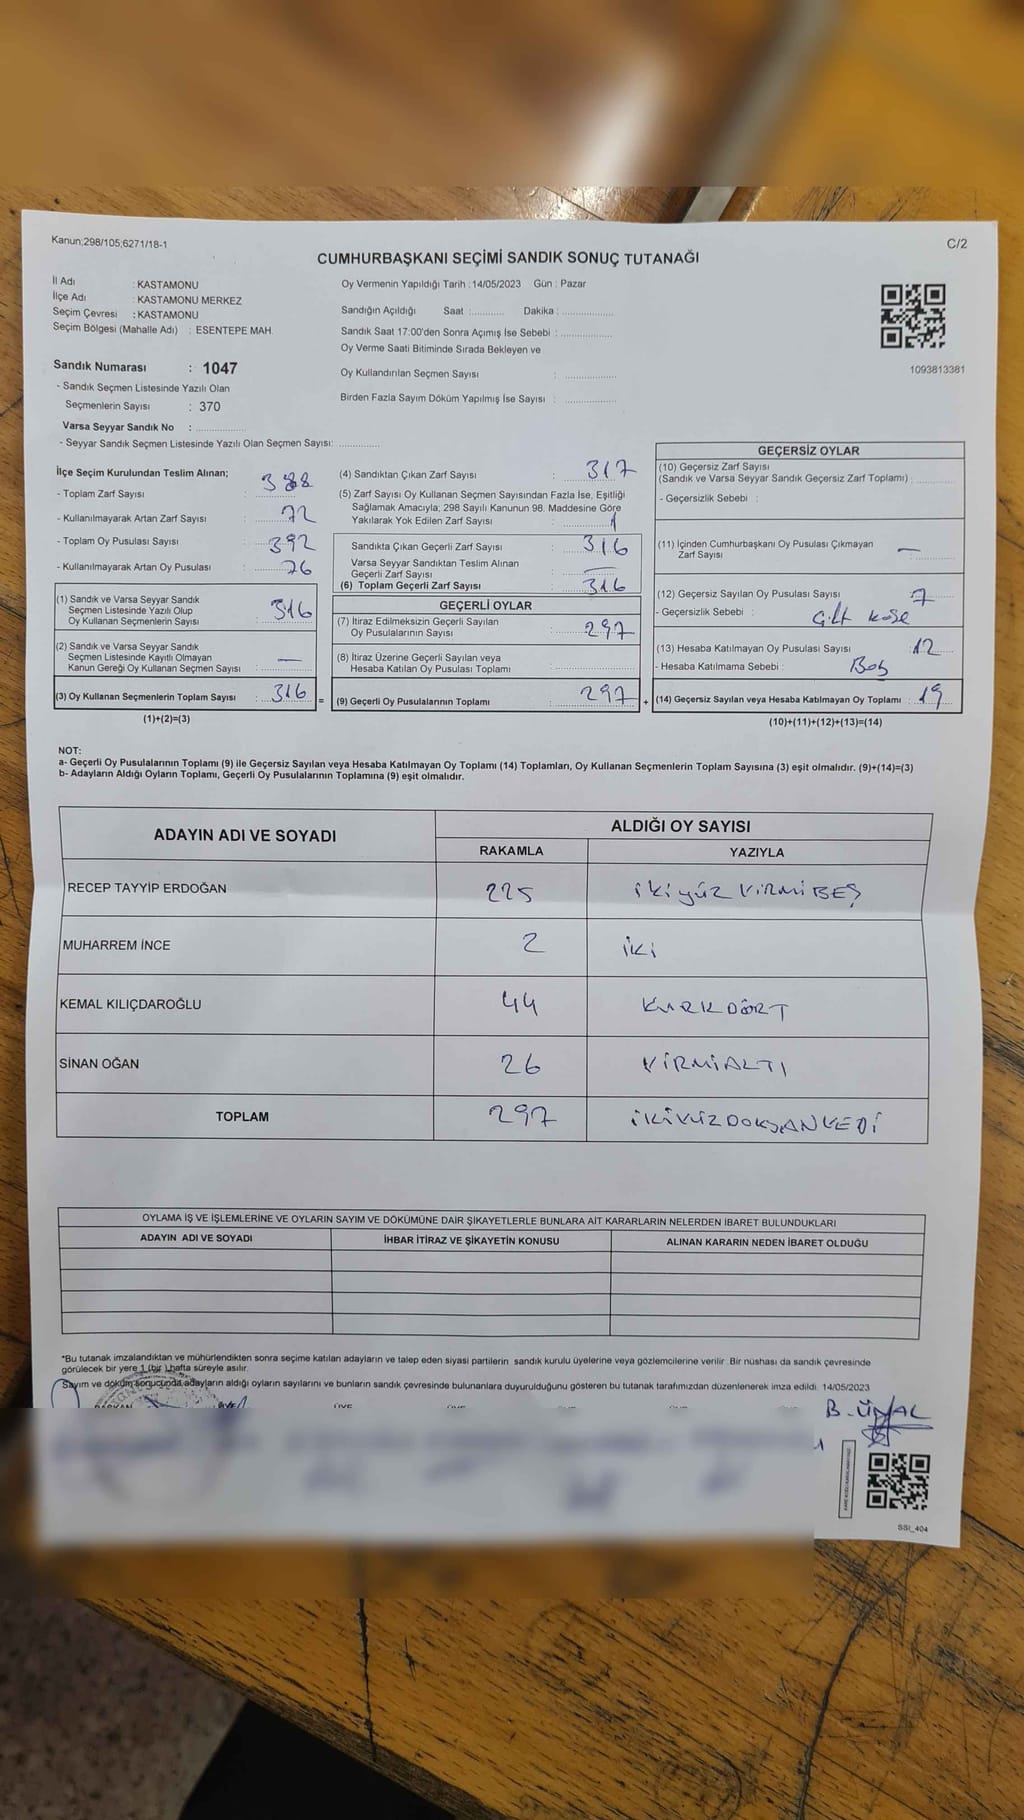 Kanun;298/105;6271/18-1
C/2
CUMHURBAŞKANI SEÇİMİ SANDIK SONUÇ TUTANAĞI
İl Adı : KASTAMONU
İlçe Adı : KASTAMONU MERKEZ
Seçim Çevresi : KASTAMONU
Seçim Bölgesi (Mahalle Adı) : ESENTEPE MAH.
Sandık Numarası : 1047
- Sandık Seçmen Listesinde Yazılı Olan
Seçmenlerin Sayısı : 370
Varsa Seyyar Sandık No : ..............
- Seyyar Sandık Seçmen Listesinde Yazılı Olan Seçmen Sayısı: ..............
Oy Vermenin Yapıldığı Tarih : 14/05/2023 Gün : Pazar
Sandığın Açıldığı Saat :........... Dakika : .................
Sandık Saat 17:00'den Sonra Açımış İse Sebebi : .................
Oy Verme Saati Bitiminde Sırada Bekleyen ve
Oy Kullandırılan Seçmen Sayısı : .................
Birden Fazla Sayım Döküm Yapılmış İse Sayısı : .................
1093813381
İlçe Seçim Kurulundan Teslim Alınan;
- Toplam Zarf Sayısı : 388
- Kullanılmayarak Artan Zarf Sayısı : 72
- Toplam Oy Pusulası Sayısı : 392
- Kullanılmayarak Artan Oy Pusulası : 76
(1) Sandık ve Varsa Seyyar Sandık
Seçmen Listesinde Yazılı Olup
Oy Kullanan Seçmenlerin Sayısı : 316
(2) Sandık ve Varsa Seyyar Sandık
Seçmen Listesinde Kayıtlı Olmayan
Kanun Gereği Oy Kullanan Seçmen Sayısı : —
(3) Oy Kullanan Seçmenlerin Toplam Sayısı : 316 =
(1)+(2)=(3)
(4) Sandıktan Çıkan Zarf Sayısı : 317
(5) Zarf Sayısı Oy Kullanan Seçmen Sayısından Fazla İse, Eşitliği
Sağlamak Amacıyla; 298 Sayılı Kanunun 98. Maddesine Göre
Yakılarak Yok Edilen Zarf Sayısı : 1
Sandıkta Çıkan Geçerli Zarf Sayısı : 316
Varsa Seyyar Sandıktan Teslim Alınan
Geçerli Zarf Sayısı : —
(6) Toplam Geçerli Zarf Sayısı : 316
GEÇERLİ OYLAR
(7) İtiraz Edilmeksizin Geçerli Sayılan
Oy Pusulalarının Sayısı : 297
(8) İtiraz Üzerine Geçerli Sayılan veya
Hesaba Katılan Oy Pusulası Toplamı :
(9) Geçerli Oy Pusulalarının Toplamı : 297 +
GEÇERSİZ OYLAR
(10) Geçersiz Zarf Sayısı
(Sandık ve Varsa Seyyar Sandık Geçersiz Zarf Toplamı) :
- Geçersizlik Sebebi :
(11) İçinden Cumhurbaşkanı Oy Pusulası Çıkmayan
Zarf Sayısı : —
(12) Geçersiz Sayılan Oy Pusulası Sayısı : 7
- Geçersizlik Sebebi : Çift Kaşe
(13) Hesaba Katılmayan Oy Pusulası Sayısı : 12
- Hesaba Katılmama Sebebi : Boş
(14) Geçersiz Sayılan veya Hesaba Katılmayan Oy Toplamı : 19
(10)+(11)+(12)+(13)=(14)
NOT:
a- Geçerli Oy Pusulalarının Toplamı (9) ile Geçersiz Sayılan veya Hesaba Katılmayan Oy Toplamı (14) Toplamları, Oy Kullanan Seçmenlerin Toplam Sayısına (3) eşit olmalıdır. (9)+(14)=(3)
b- Adayların Aldığı Oyların Toplamı, Geçerli Oy Pusulalarının Toplamına (9) eşit olmalıdır.
ADAYIN ADI VE SOYADI ALDIĞI OY SAYISI
RAKAMLA YAZIYLA
RECEP TAYYİP ERDOĞAN 225 İKİ YÜZ YİRMİ BEŞ
MUHARREM İNCE 2 İKİ
KEMAL KILIÇDAROĞLU 44 KIRK DÖRT
SİNAN OĞAN 26 YİRMİALTI
TOPLAM 297 İKİYÜZDOKSANYEDİ
OYLAMA İŞ VE İŞLEMLERİNE VE OYLARIN SAYIM VE DÖKÜMÜNE DAİR ŞİKAYETLERLE BUNLARA AİT KARARLARIN NELERDEN İBARET BULUNDUKLARI
ADAYIN ADI VE SOYADI İHBAR İTİRAZ VE ŞİKAYETİN KONUSU ALINAN KARARIN NEDEN İBARET OLDUĞU
*Bu tutanak imzalandıktan ve mühürlendikten sonra seçime katılan adayların ve talep eden siyasi partilerin sandık kurulu üyelerine veya gözlemcilerine verilir. Bir nüshası da sandık çevresinde
görülecek bir yere 1 (bir ) hafta süreyle asılır.
Sayım ve döküm sonucunda adayların aldığı oyların sayılarını ve bunların sandık çevresinde bulunanlara duyurulduğunu gösteren bu tutanak tarafımızdan düzenlenerek imza edildi. 14/05/2023
B. ÜNAL
SSI_404